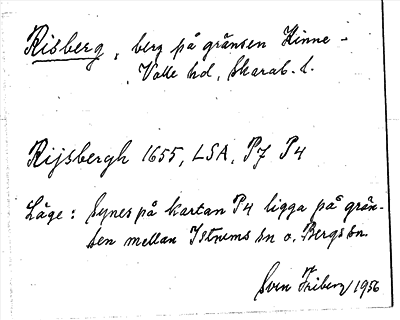 Risberg, berg på gränsen Kinne-
Valle hd, Skarab. l.
Rijsbergh 1655, LSA, P7 P4
Läge: Synes på kartan P4 ligga på grän-
sen mellan Istrums sn o. Bergs sn.
Sven Friberg 1956